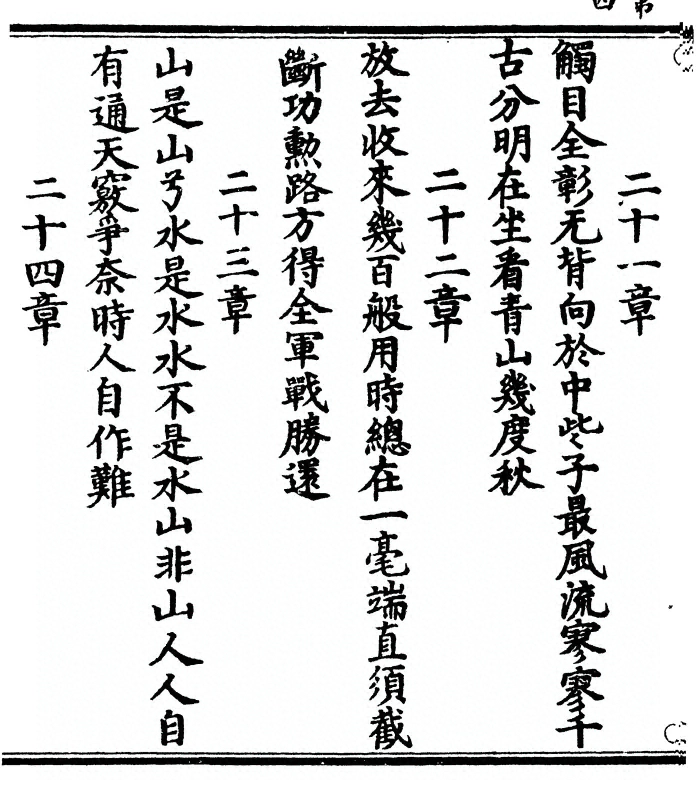 第
四
二十一章
觸目全彰无背向於中些子最風流寥寥千
古分明在坐看青山幾度秋
二十二章
放去收來幾百般用時總在一毫端直須截
斷功勳路方得全軍戰勝還
二十三章
山是山兮水是水水不是水山非山人人自
有通天竅爭奈時人自作難
二十四章